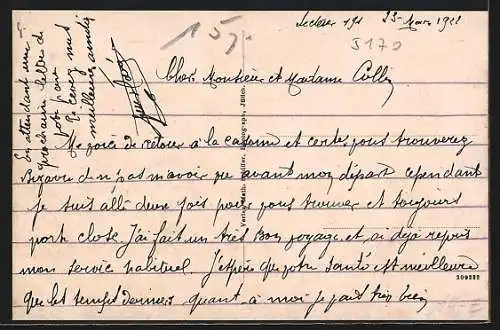 15,-
23 Mars 1922
5170
Cher Monsieur et Madame Collin
Me voici de retour à la caserne et certes vous trouverez
bizarre de n'pas m'avoir vu avant mon départ cependant
je suis allé deux fois pour vous trouver et toujours
porte close. J'ai fait un très bon voyage et ai déjà repris
mon service habituel J'espère que votre santé est meilleure
que les temps derniers quant à moi je vais très bien
En attendant une
prochaine lettre de
votre part
recevez mes
meilleures amitiés